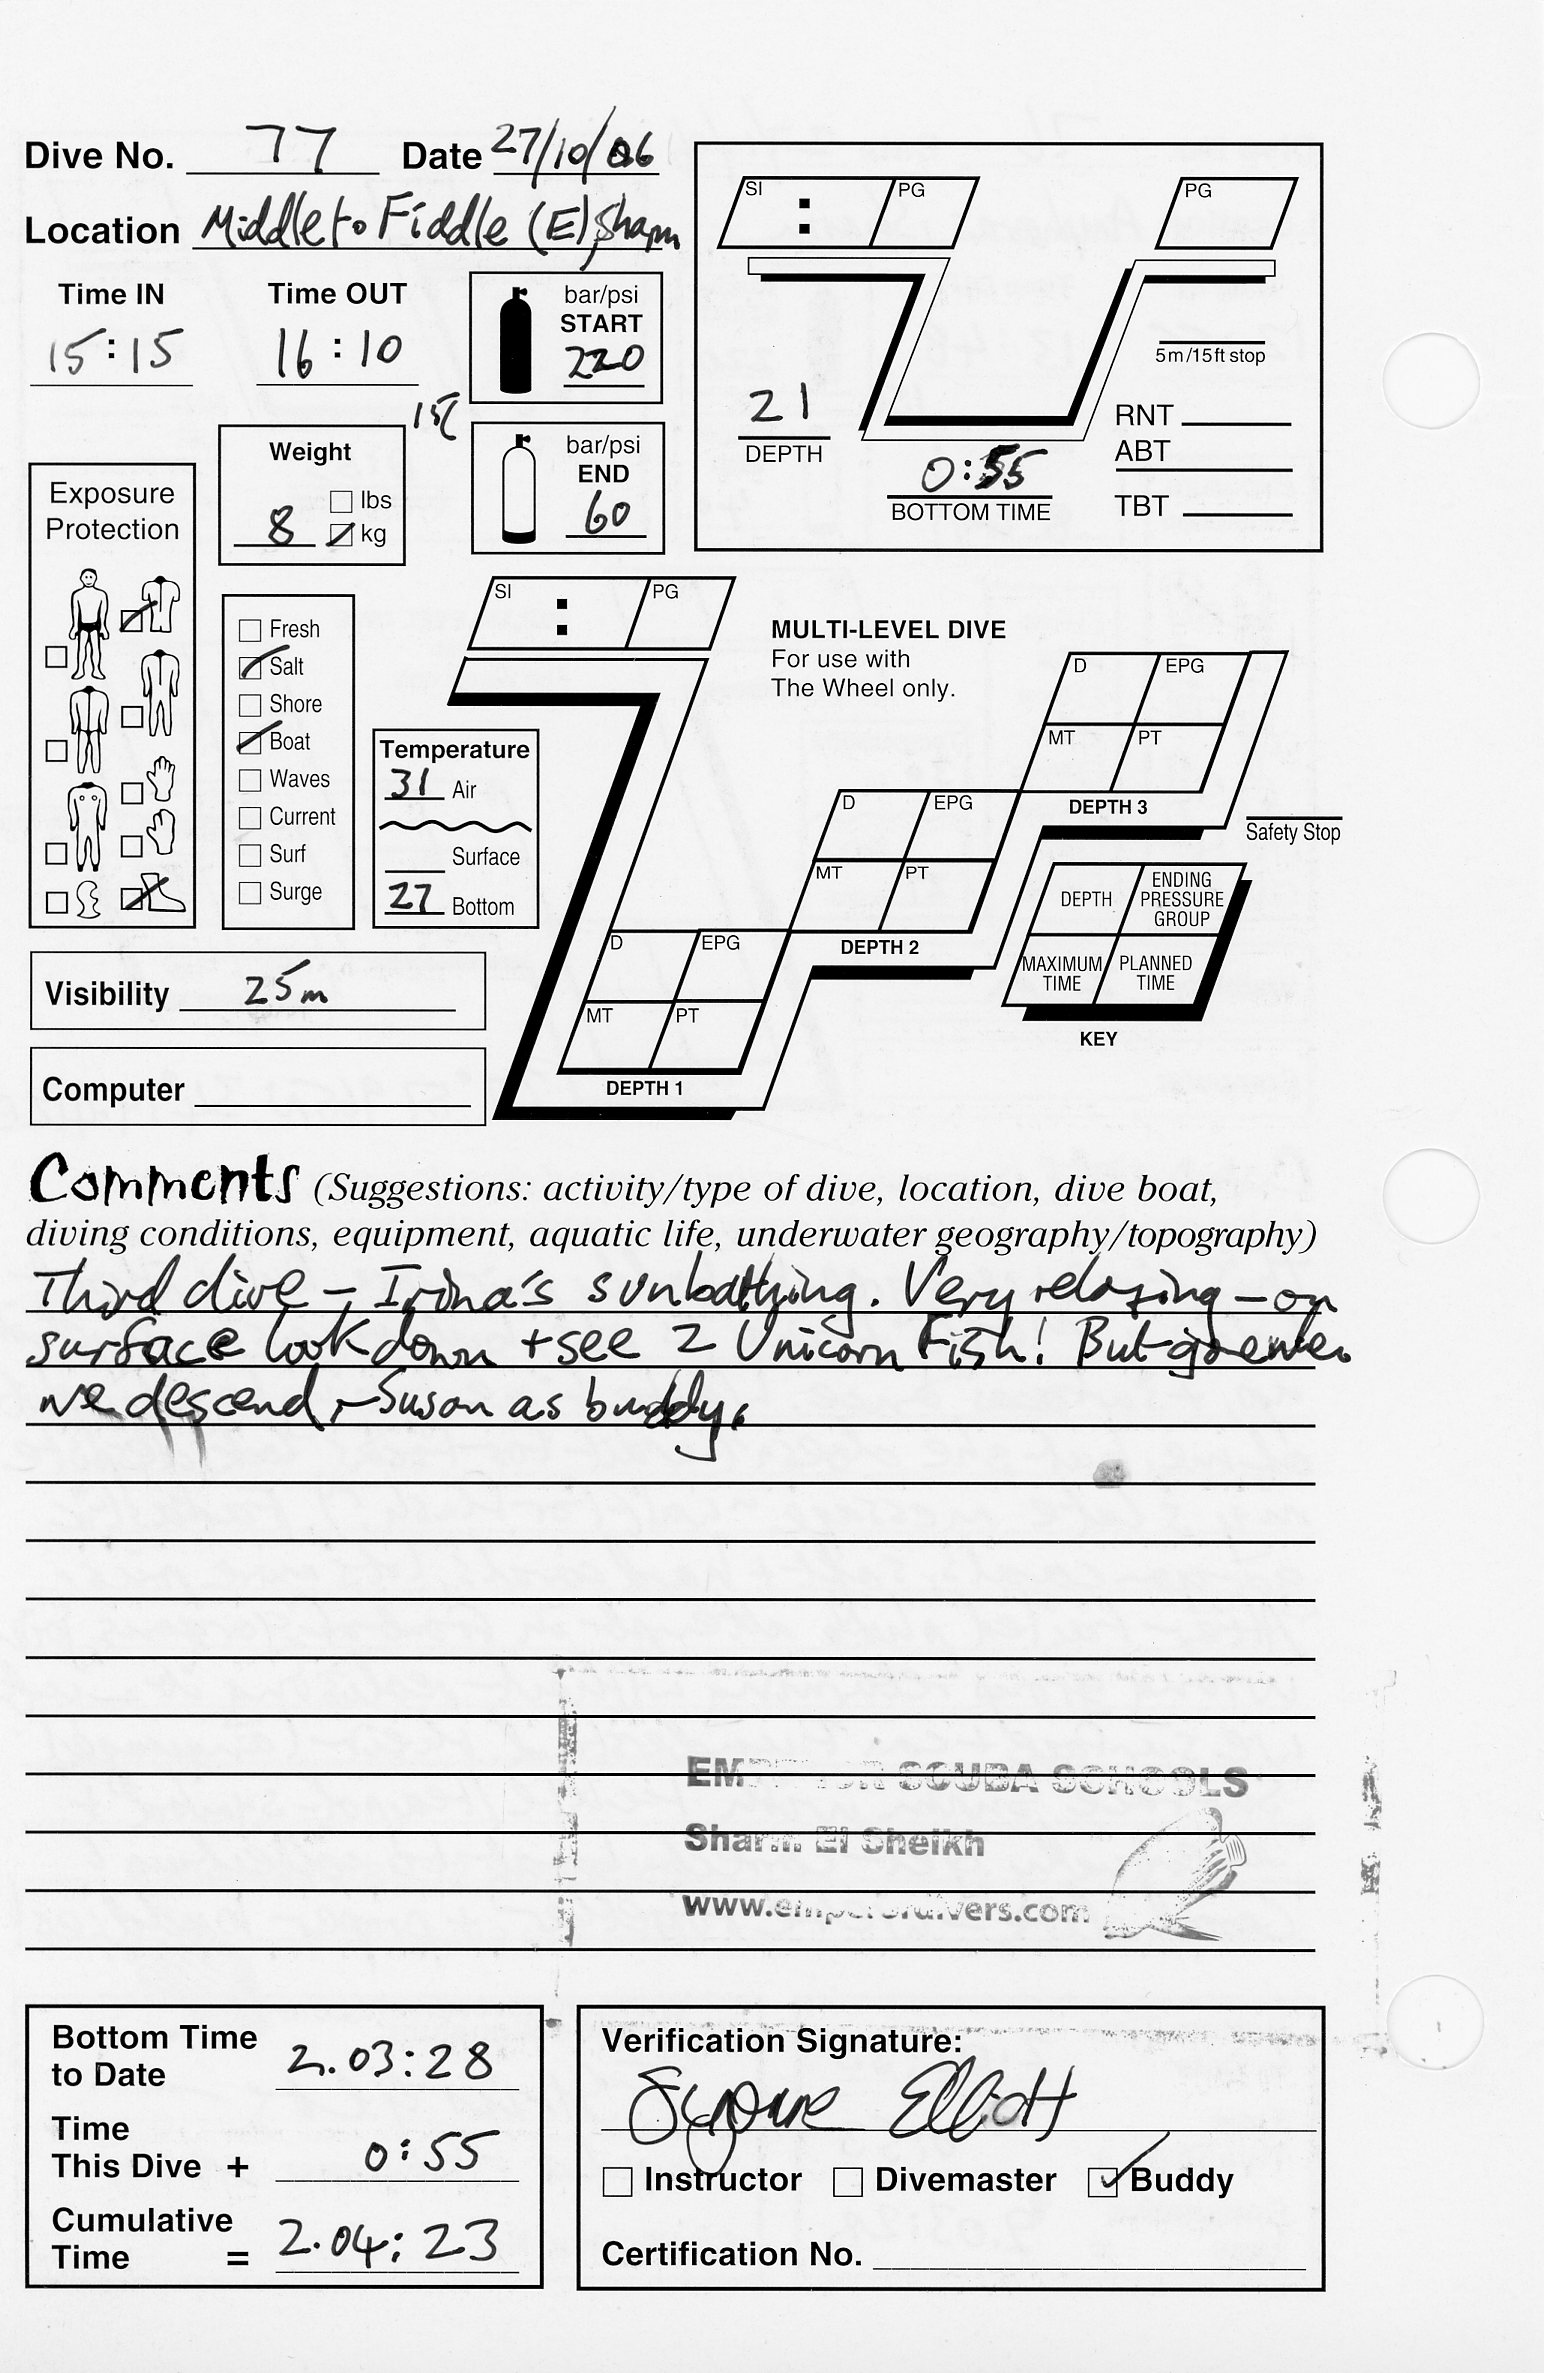 Dive No. 77 Date 27/10/06
Location Middle to Fiddle (E) Sham
SI : PG PG
Time IN Time OUT
15:15 16:10
bar/psi
START
220
15l
bar/psi
END
60
21
DEPTH
0:55
BOTTOM TIME
5m/15ft stop
RNT
ABT
TBT
Weight
lbs
8 kg
Exposure
Protection
Fresh
Salt
Shore
Boat
Waves
Current
Surf
Surge
Temperature
31 Air
Surface
27 Bottom
SI : PG
MULTI-LEVEL DIVE
For use with
The Wheel only.
D EPG
MT PT
DEPTH 3
D EPG
MT PT
DEPTH 2
D EPG
MT PT
DEPTH 1
Safety Stop
DEPTH ENDING PRESSURE GROUP
MAXIMUM TIME PLANNED TIME
KEY
Visibility 25m
Computer
Comments (Suggestions: activity/type of dive, location, dive boat,
diving conditions, equipment, aquatic life, underwater geography/topography)
Third dive – Irina's sunbathing. Very relaxing – on
surface look down + see 2 Unicorn Fish! But gone when
we descend – Susan as buddy.
EMPEROR SCUBA SCHOOLS
Sharm El Sheikh
www.emperordivers.com
Bottom Time
to Date 2.03:28
Time
This Dive + 0:55
Cumulative
Time = 2.04:23
Verification Signature:
Elliott
Instructor Divemaster Buddy
Certification No.